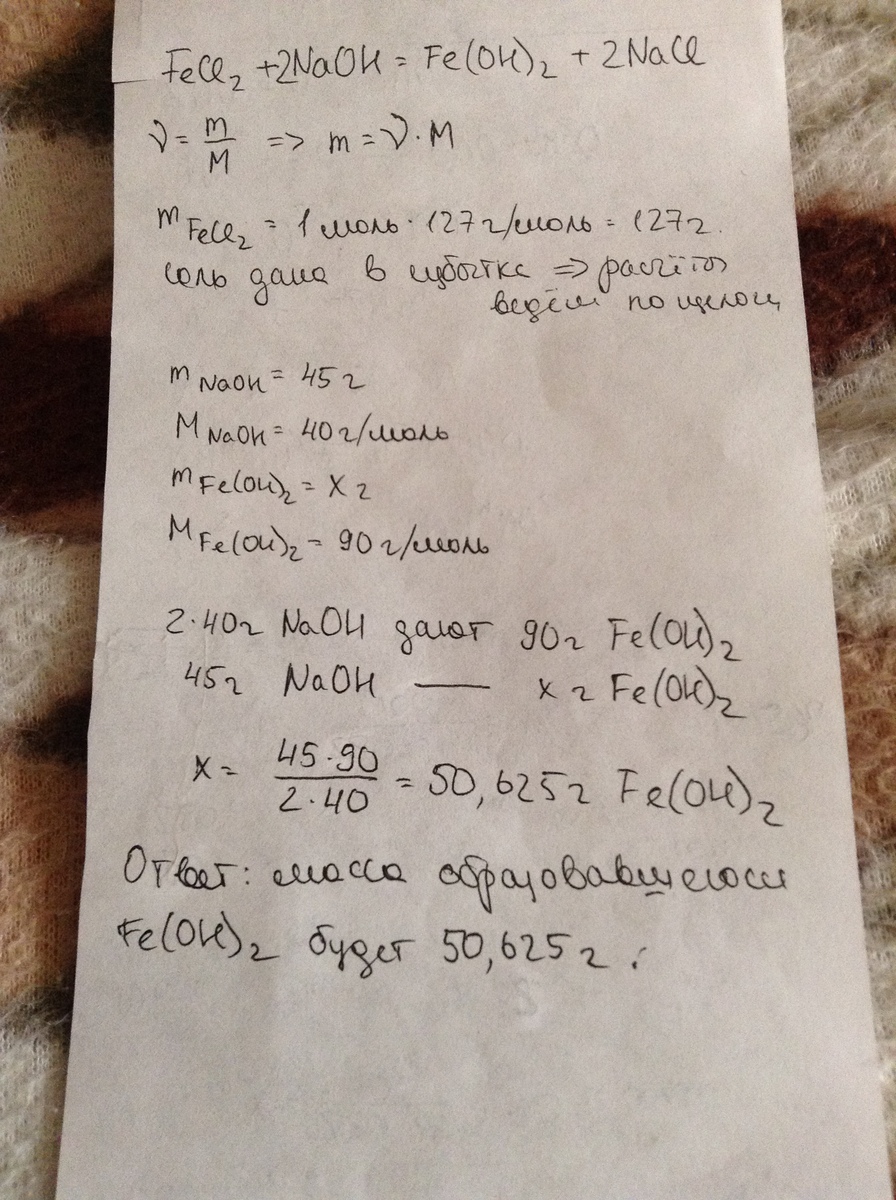 FeCl₂ + 2NaOH = Fe(OH)₂ + 2NaCl
ν = m/M => m = ν · M
m FeCl₂ = 1 моль · 127 г/моль = 127 г.
соль дана в избытке => расчёт
ведём по щелочи
m NaOH = 45 г
M NaOH = 40 г/моль
m Fe(OH)₂ = x г
M Fe(OH)₂ = 90 г/моль
2·40г NaOH дают 90г Fe(OH)₂
45г NaOH — x г Fe(OH)₂
x = 45·90 / 2·40 = 50,625г Fe(OH)₂
Ответ: масса образовавшегося
Fe(OH)₂ будет 50,625 г.